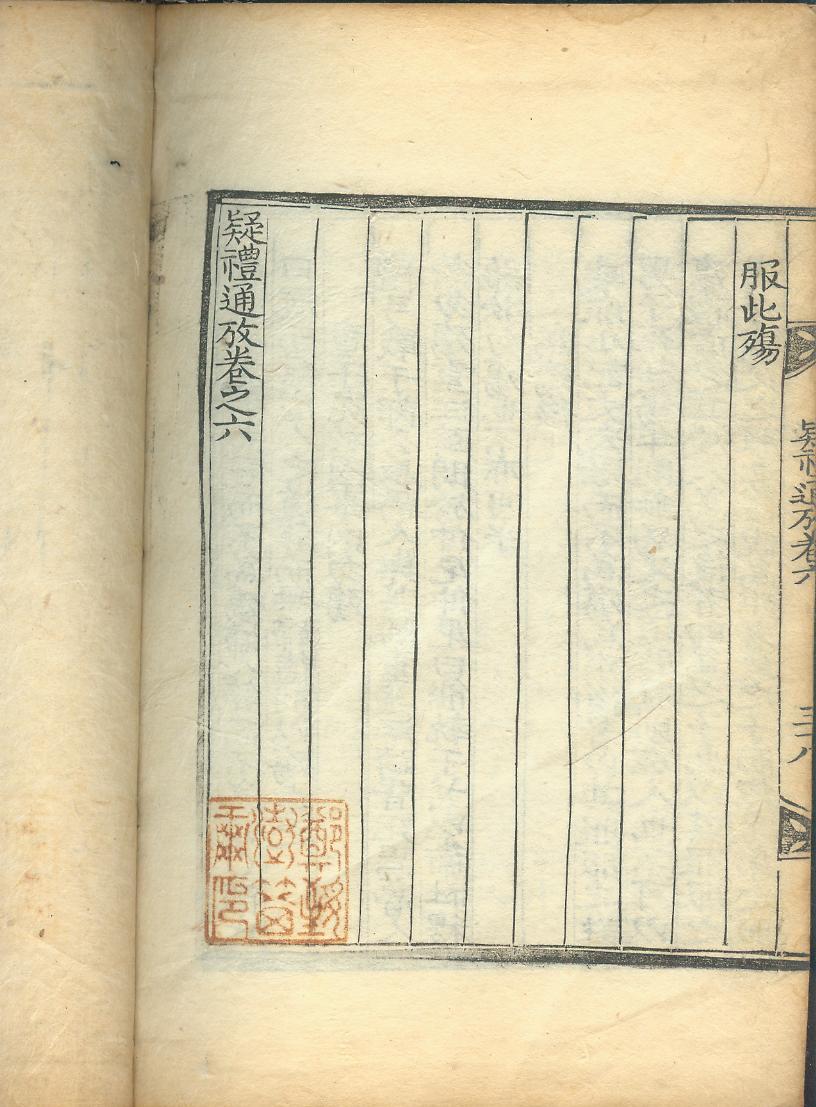 疑禮通攷卷六
三十八
服此殤
疑禮通攷卷之六